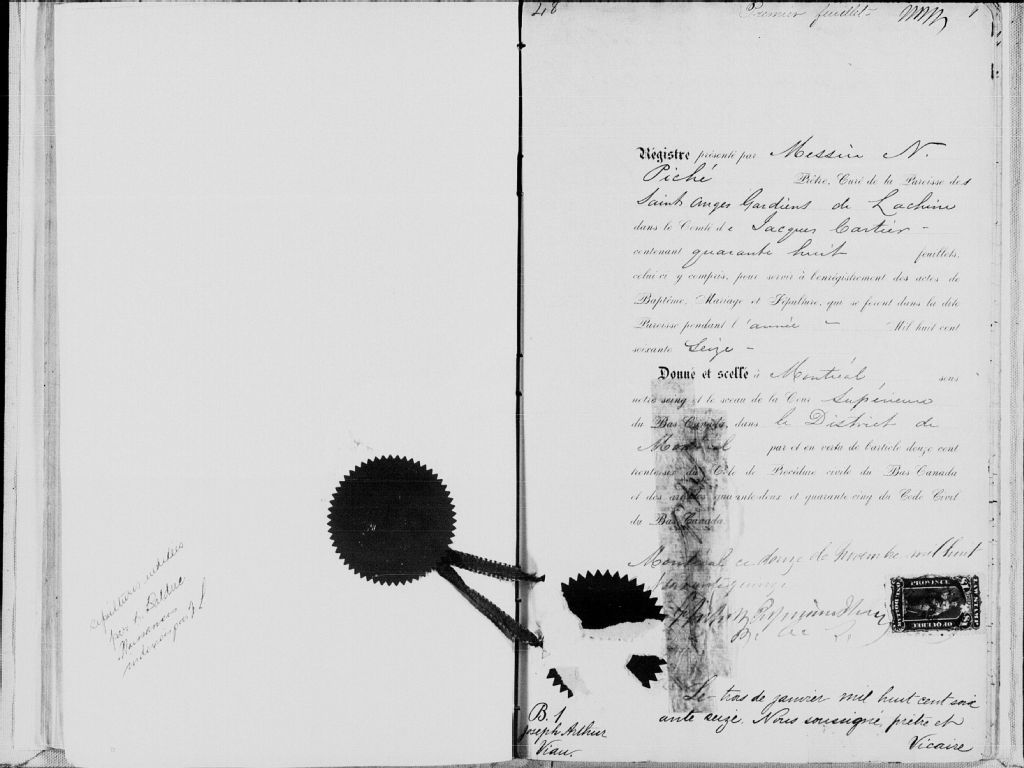 48
Premier feuillet
1
Régistre présenté par Messire N.
Piché Prêtre, Curé de la Paroisse des
Saints Anges Gardiens de Lachine
dans le Comté de Jacques Cartier -
contenant quarante huit feuillets,
celui-ci y compris, pour servir à l'enrégistrement des actes de
Baptême, Mariage et Sépulture, qui se feront dans la dite
Paroisse pendant l'année - Mil huit cent
soixante Seize -
Donné et scellé à Montréal sous
notre seing et le sceau de la Cour Supérieure
du Bas Canada, dans le District de
Montréal par et en vertu de l'article douze cent
trente-six du Code de Procédure civile du Bas Canada
et des articles quarante-deux et quarante-cinq du Code Civil
du Bas Canada.
Montréal ce douze de Novembre mil huit
PROVINCE
OF QUEBEC
Le trois de janvier mil huit cent soix
ante seize. Nous soussigné, prêtre et
Vicaire
B. 1
Joseph Arthur
Viau.
sépultures
par L.